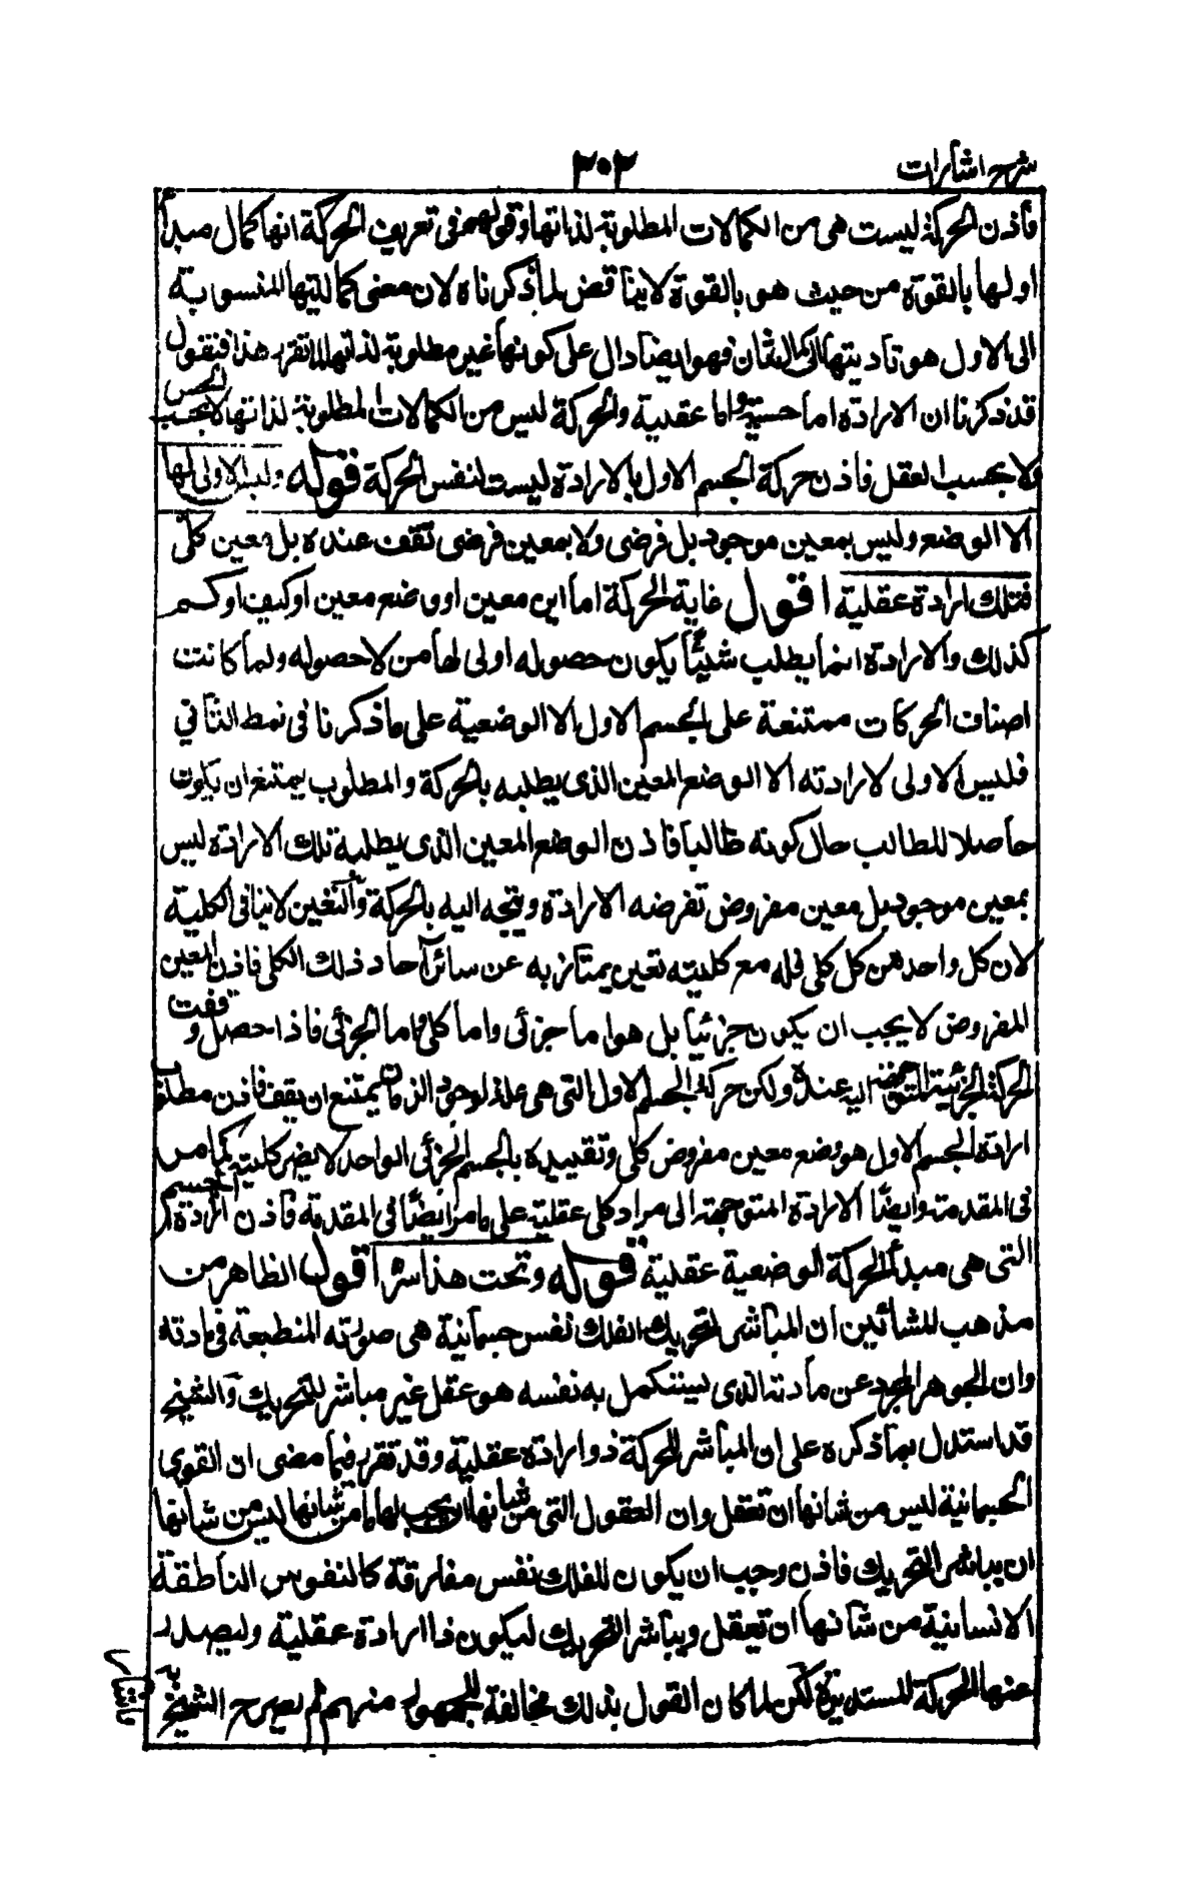 شرح اشارات
٣٠٢
فاذن الحركة ليست هى من الكمالات المطلوبة لذاتها وقولهم فى تعريف الحركة انها كمال مبدأ
اولها بالقوة من حيث هو بالقوة لا يناقض لما ذكرناه لان معنى كماليتها المنسوبة
الى الاول هو تاديتها الى كمال الثان فهو ايضا دال على كونها غير مطلوبة لذاتها لما تقرر هذا فنقول
قد ذكرنا ان الارادة اما حسية واما عقلية والحركة ليس من الكمالات المطلوبة لذاتها لا بحسب الحس
ولا بحسب العقل فاذن حركة الجسم الاول بالارادة ليست لنفس الحركة قوله وليس الاولى لها
الا الوضع وليس بمعين موجود بل فرضى ولا بمعين فرضى تقف عنده بل معين كلى
فتلك ارادة عقلية اقول غاية الحركة اما اين معين او وضع معين او كيف او كم
كذلك والارادة انما يطلب شيئا يكون حصوله اولى لها من لا حصوله ولما كانت
اصناف الحركات ممتنعة على الجسم الاول الا الوضعية على ما ذكرنا فى نمط الثانى
فليس الاولى لارادته الا الوضع المعين الذى يطلبه بالحركة والمطلوب يمتنع ان يكون
حاصلا للطالب حال كونه طالبا فاذن الوضع المعين الذى يطلبه تلك الارادة ليس
بمعين موجود بل معين مفروض تفرضه الارادة ويتجه اليه بالحركة والتعين لا ينافى الكلية
لان كل واحد من كل كلى فله مع كليته تعين يمتاز به عن سائر آحاد ذلك الكلى فاذن المعين
المفروض لا يجب ان يكون جزئيا بل هو اما جزئى واما كلى فاما الجزئى فاذا حصل وقفت
الحركة الجزئية المتوجهة اليه عنده ولكن حركة الجسم الاول التى هى علة لوجود الزمان يمتنع ان يقف فاذن مطلوب
ارادة الجسم الاول هو وضع معين مفروض كلى وتقييده بالجسم الجزئى الواحد لا يضر كليته كما مر
فى المقدمة وايضا الارادة المتوجهة الى مراد كلى عقلية على ما مر ايضا فى المقدمة فاذن ارادة الجسم
التى هى مبدأ الحركة الوضعية عقلية قوله وتحت هذا سر اقول الظاهر من
مذهب المشائين ان المباشر لتحريك الفلك نفس جسمانية هى صورته المنطبعة فى مادته
وان الجوهر المجرد عن مادته الذى يستكمل به نفسه هو عقل غير مباشر للتحريك والشيخ
قد استدل بما ذكره على ان المباشر للحركة ذو ارادة عقلية وقد تقرر فيما مضى ان القوى
الجسمانية ليس من شانها ان تعقل وان العقول التى من شانها ان يجب لها ما من شانها ليس من شانها
ان يباشر التحريك فاذن وجب ان يكون للفلك نفس مفارقة كالنفوس الناطقة
الانسانية من شانها ان تعقل ويباشر التحريك ليكون ذا ارادة عقلية وليصدر
عنها الحركة المستديرة لكن لما كان القول بذلك مخالفة للجمهور منهم لم يصرح الشيخ به